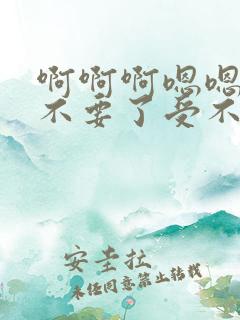 啊啊啊嗯嗯
不要了受不
安圭拉
未经同意禁止转载